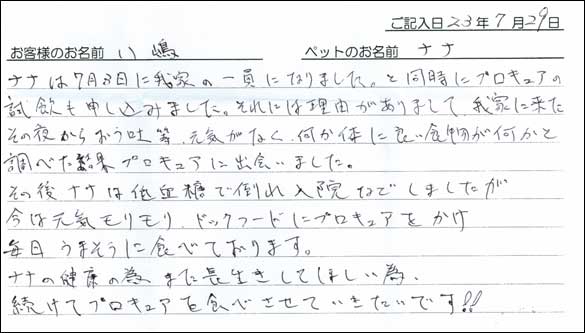 ご記入日23年7月29日
お客様のお名前 川嶋 ペットのお名前 ナナ
ナナは7月3日に我家の一員になりました。と同時にプロキュアの
試飲も申し込みました。それには理由がありまして、我家に来た
その夜からおう吐等、元気がなく、何か体に良い食物が何かと
調べた結果プロキュアに出会いました。
その後ナナは低血糖で倒れ入院などしましたが
今は元気モリモリ、ドックフードにプロキュアをかけ
毎日うまそうに食べております。
ナナの健康の為、また長生きしてほしい為、
続けてプロキュアを食べさせていきたいです!!